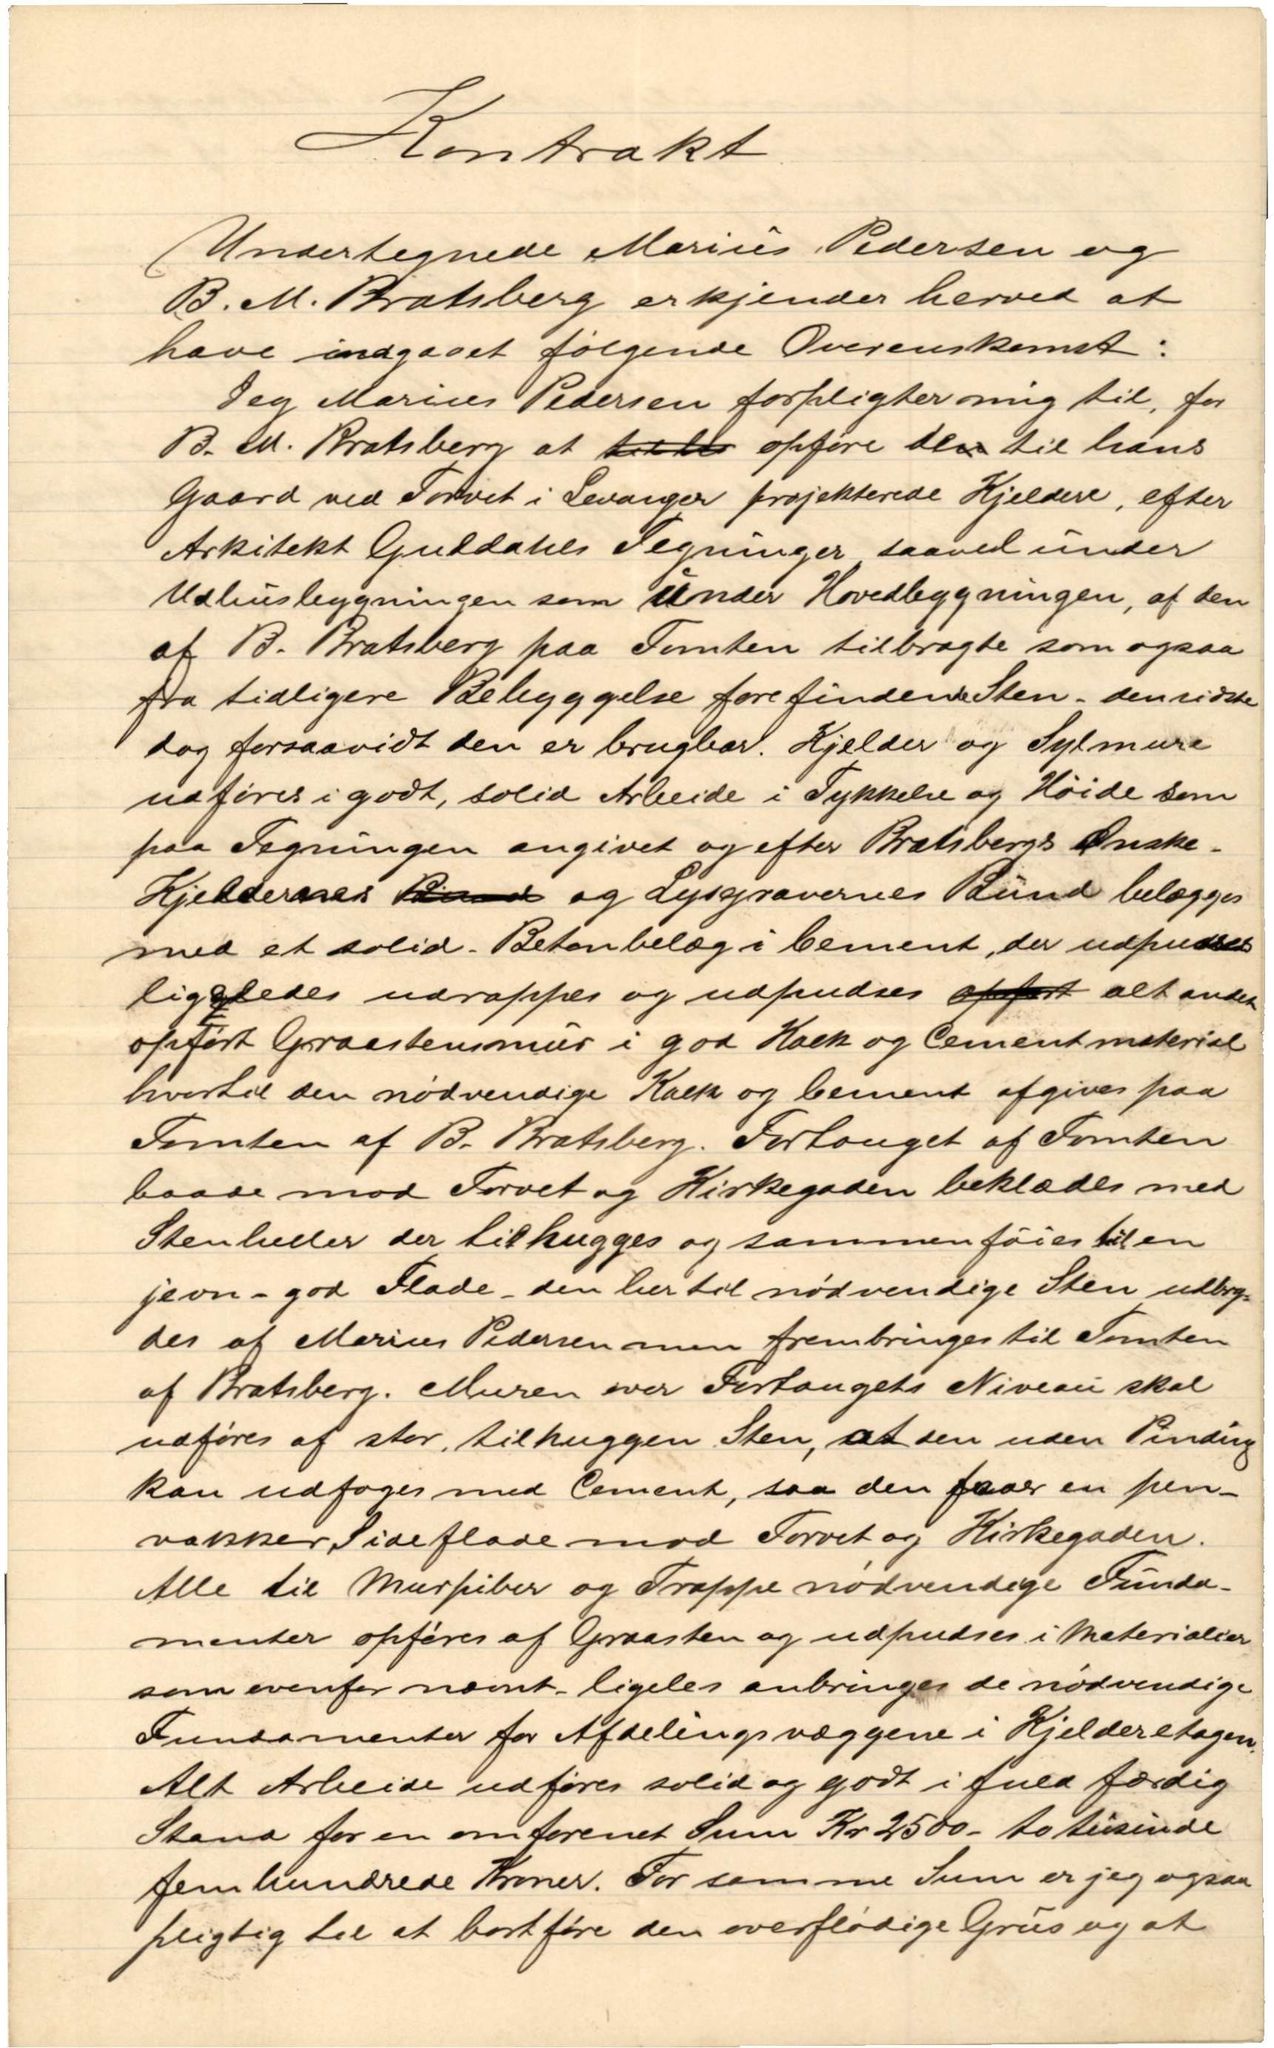 Kontrakt
Undertegnede Marius Pedersen og
B. M. Bratsberg erkjender herved at
have indgaaet følgende Overenskomst:
Jeg Marius Pedersen forpligter mig til, for
B. M. Bratsberg at opføre den til hans
Gaard ved Torvet i Levanger projekterede Kjeldere, efter
Arkitekt Guldahls Tegninger saavel under
Udhusbygningen som under Hovedbygningen, af den
af B. Bratsberg paa Tomten tilbragte som ogsaa
fra tidligere Bebyggelse forefindende Sten - den sidste
dog forsaavidt den er brugbar. Kjelder og Sylmure
udføres i godt, solid Arbeide i Tykkelse og Høide som
paa Tegningen angivet og efter Bratsbergs Ønske.
Kjeldernes Bund og Lysgravernes Bund belægges
med et solid - Betonbelæg i Cement, der udpudses
ligeledes udrappes og udpudses opført alt andet
opført Graastensmur i god Kalk og Cementmaterial
hvortil den nødvendige Kalk og Cement afgives paa
Tomten af B. Bratsberg. Fortouget af Tomten
baade mod Torvet og Kirkegaden beklædes med
Stenheller der tilhugges og sammenføies til en
jevn - god Flade - den hertil nødvendige Sten udbry-
des af Marius Pedersen men frembringes til Tomten
af Bratsberg. Muren over Fortougets Niveau skal
udføres af stor, tilhuggen Sten, at den uden Pinding
kan udfuges med Cement, saa den faaer en pen -
vakker Sideflade mod Torvet og Kirkegaden.
Alle til Murpiber og Trappe nødvendige Funda-
menter opføres af Graasten og udpudses i Materialier
som ovenfor nævnt - ligeles anbringes de nødvendige
Fundamenter for Afdelingsvæggene i Kjelderetagen.
Alt Arbeide udføres solid og godt i fuld færdig
Stand for en omforenet Sum Kr 2500 - to tusinde
femhundrede Kroner. For samme Sum er jeg ogsaa
pligtig til at bortføre den overflødige Grus og at